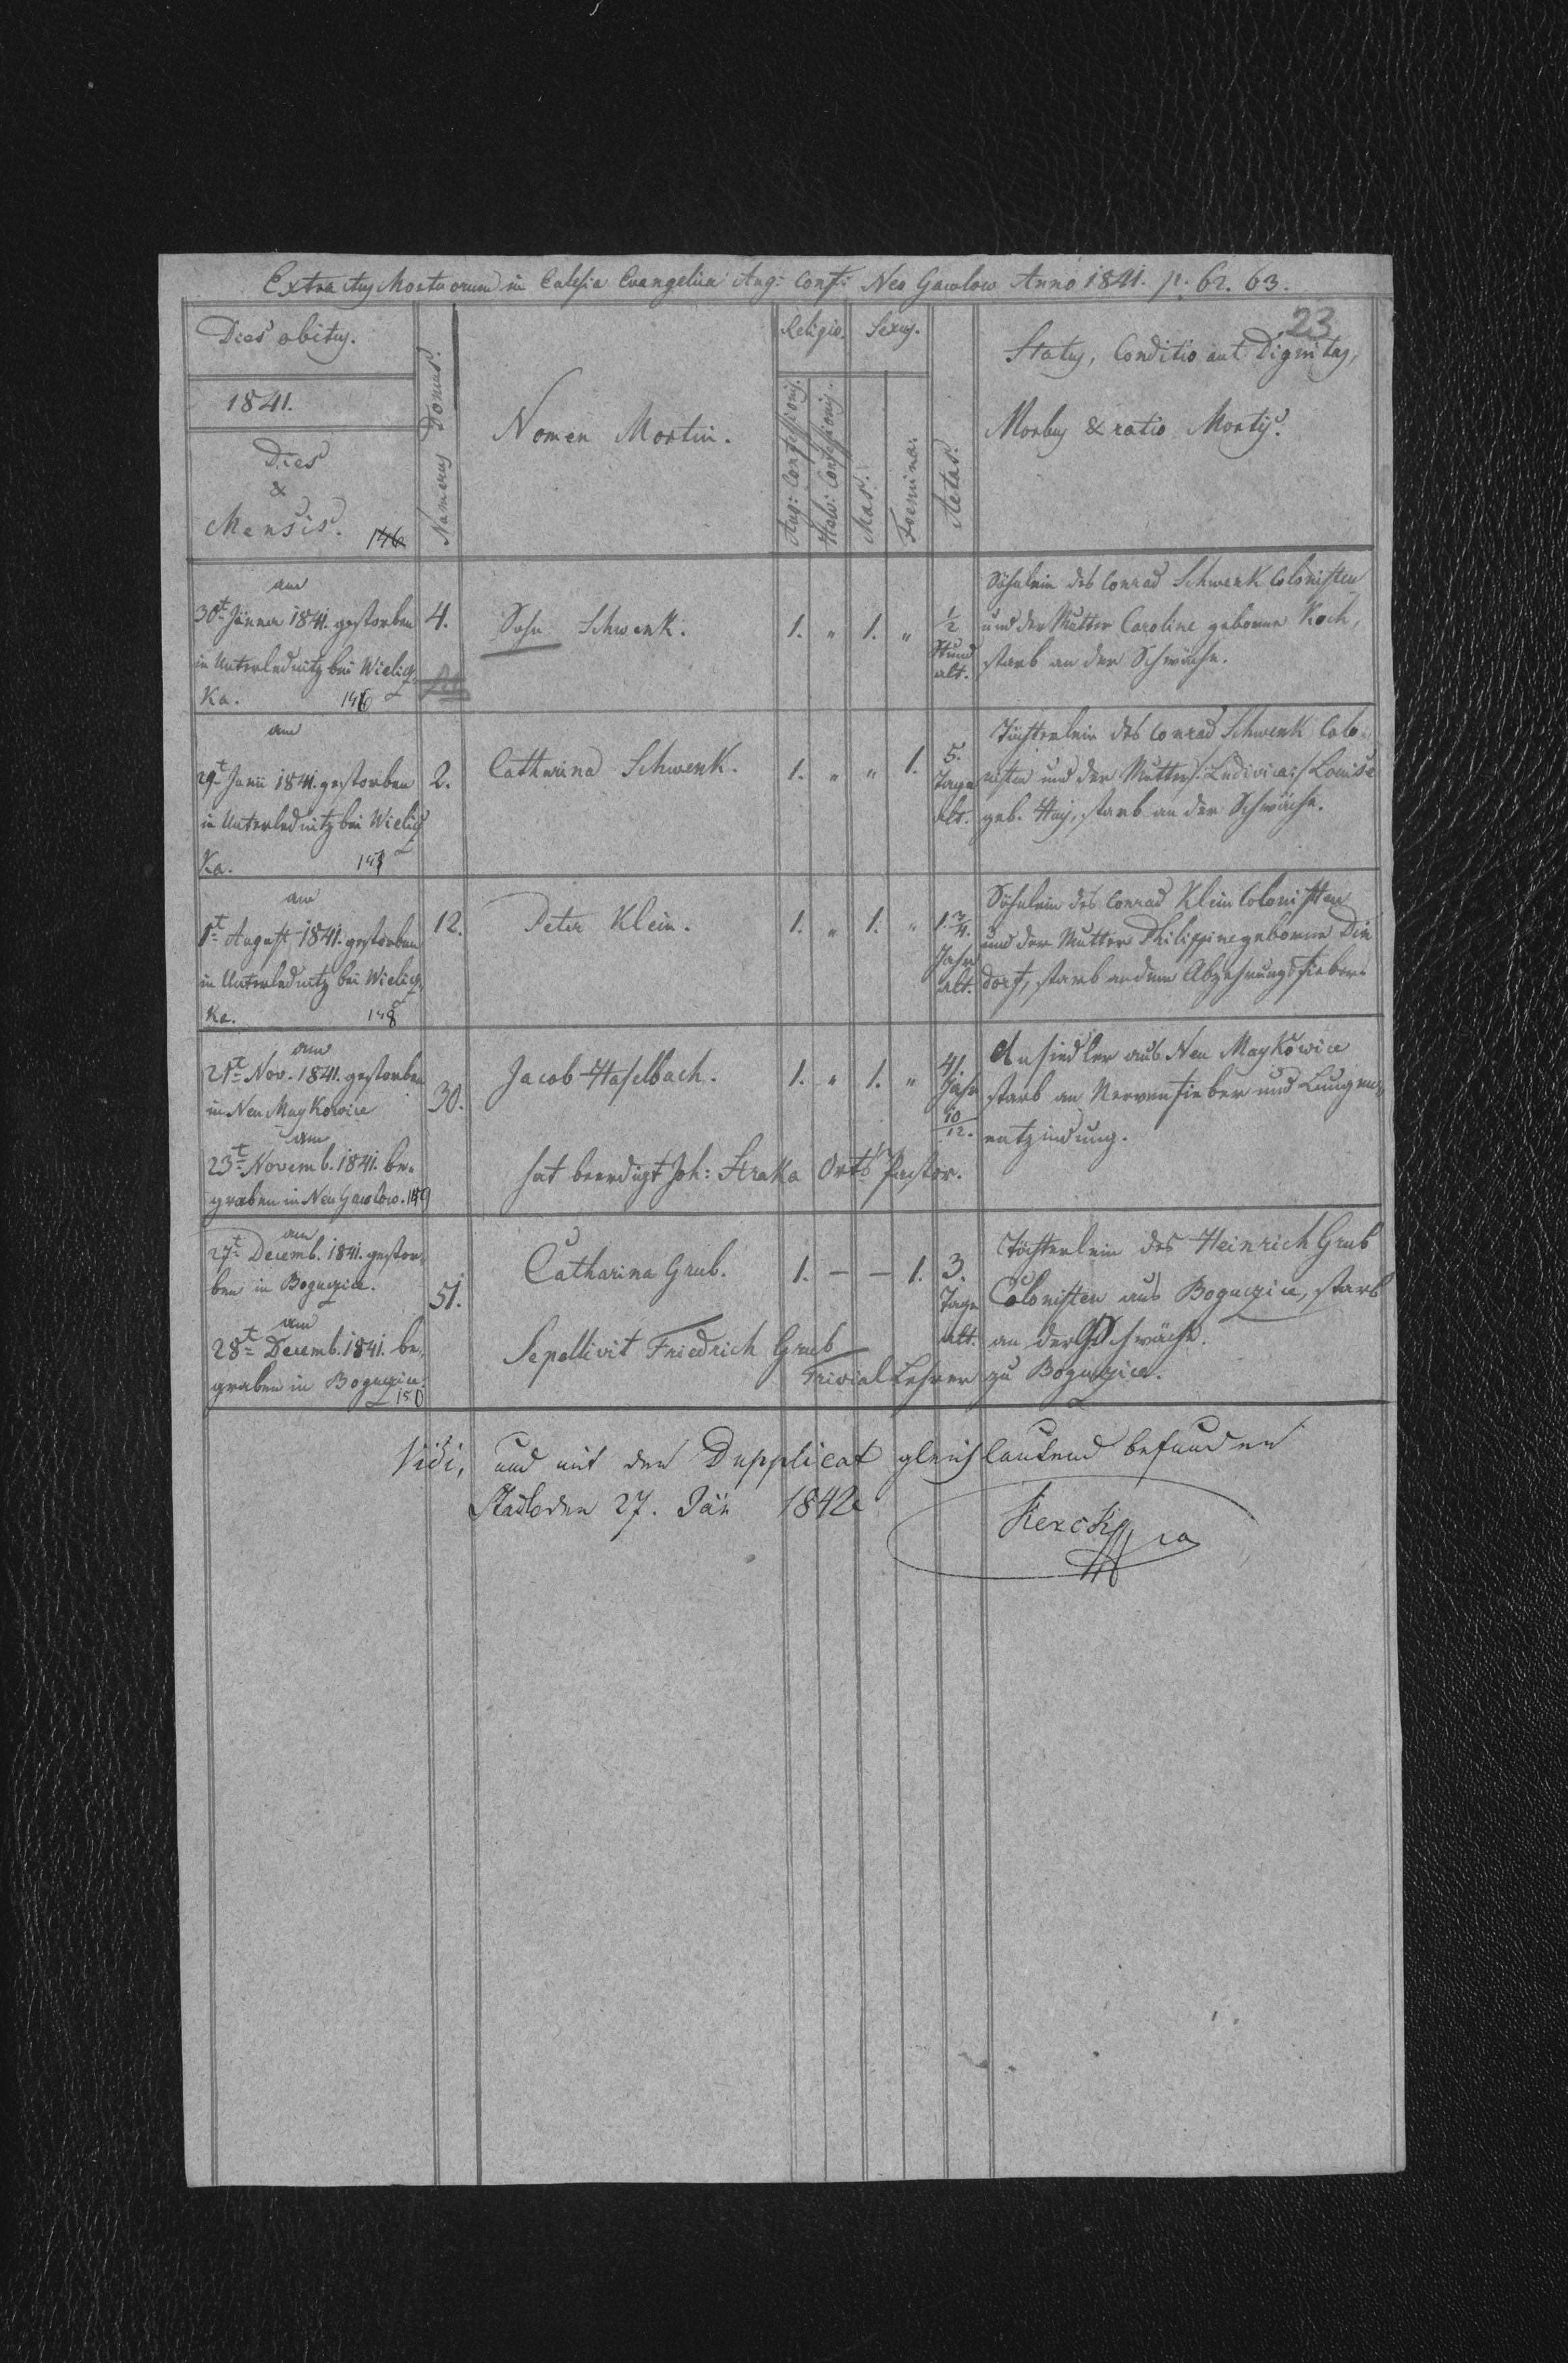 Extractus Mortuorum in Eclesia Evangelica Aug: Conf: Neo Gawlow Anno 1841. p. 62. 63.
23
Dies obitus.
1841.
Dies
&
Mensis. 146
Numerus Domus.
Nomen Mortui.
Religio.
Aug: Confessionis.
Helv: Confessionis.
Sexus.
Mas.
Foemina.
Aetas.
Status, Conditio aut Dignitas,
Morbus & ratio Mortis.
am
30t Jänner 1841. gestorben
in Unterlednitz bei Wielicz
Ka. 146
4.
Sohn Schwenk.
1. " 1. "
1/2
Stund
alt.
Söhnlein des Conrad Schwenk Colonisten
und der Mutter Caroline geborne Koch,
starb an der Schwäche.
am
29t Junii 1841. gestorben
in Unterlednitz bei Wielicz
Ka. 147
2.
Catharina Schwenk.
1. " " 1.
5.
Tage
alt.
Töchterlein des Conrad Schwenk Colo-
nisten und der Mutter /:Ludivica:/ Louise
geb. Huj, starb an der Schwäche.
am
1t August 1841. gestorben
in Unterlednitz bei Wielicz
Ka. 148
12.
Peter Klein.
1. " 1. "
1. 3/4.
Jahr
alt.
Söhnlein des Conrad Klein Colonisten
und der Mutter Philippine geborne Din
dorf, starb an dem Abzehrungsfieber.
am
21t Nov. 1841. gestorben
in Neu Maykowice
am
23t Novemb. 1841. be-
graben in Neu Gawlow. 149
30.
Jacob Haselbach.
1. " 1. "
41.
Jahr
10/12.
Ansiedler aus Neu Maykowice
starb an Nervenfieber und Lungen-
entzindung.
hat beerdigt Joh: Straka Orts Pastor.
am
27t Decemb. 1841. gestor-
ben in Boguczice.
am
28t Decemb. 1841. be-
graben in Boguczice.
150
51.
Catharina Grub.
1. — — 1.
3.
Tage
alt.
Töchterlein des Heinrich Grub
Colonisten aus Boguczice, starb
an der Schwäche.
Sepellivit Friedrich Grub
Trivial Lehrer zu Boguczice.
Vidi, und mit den Dupplicat gleichlautend befunden
den 27. Jän 1842